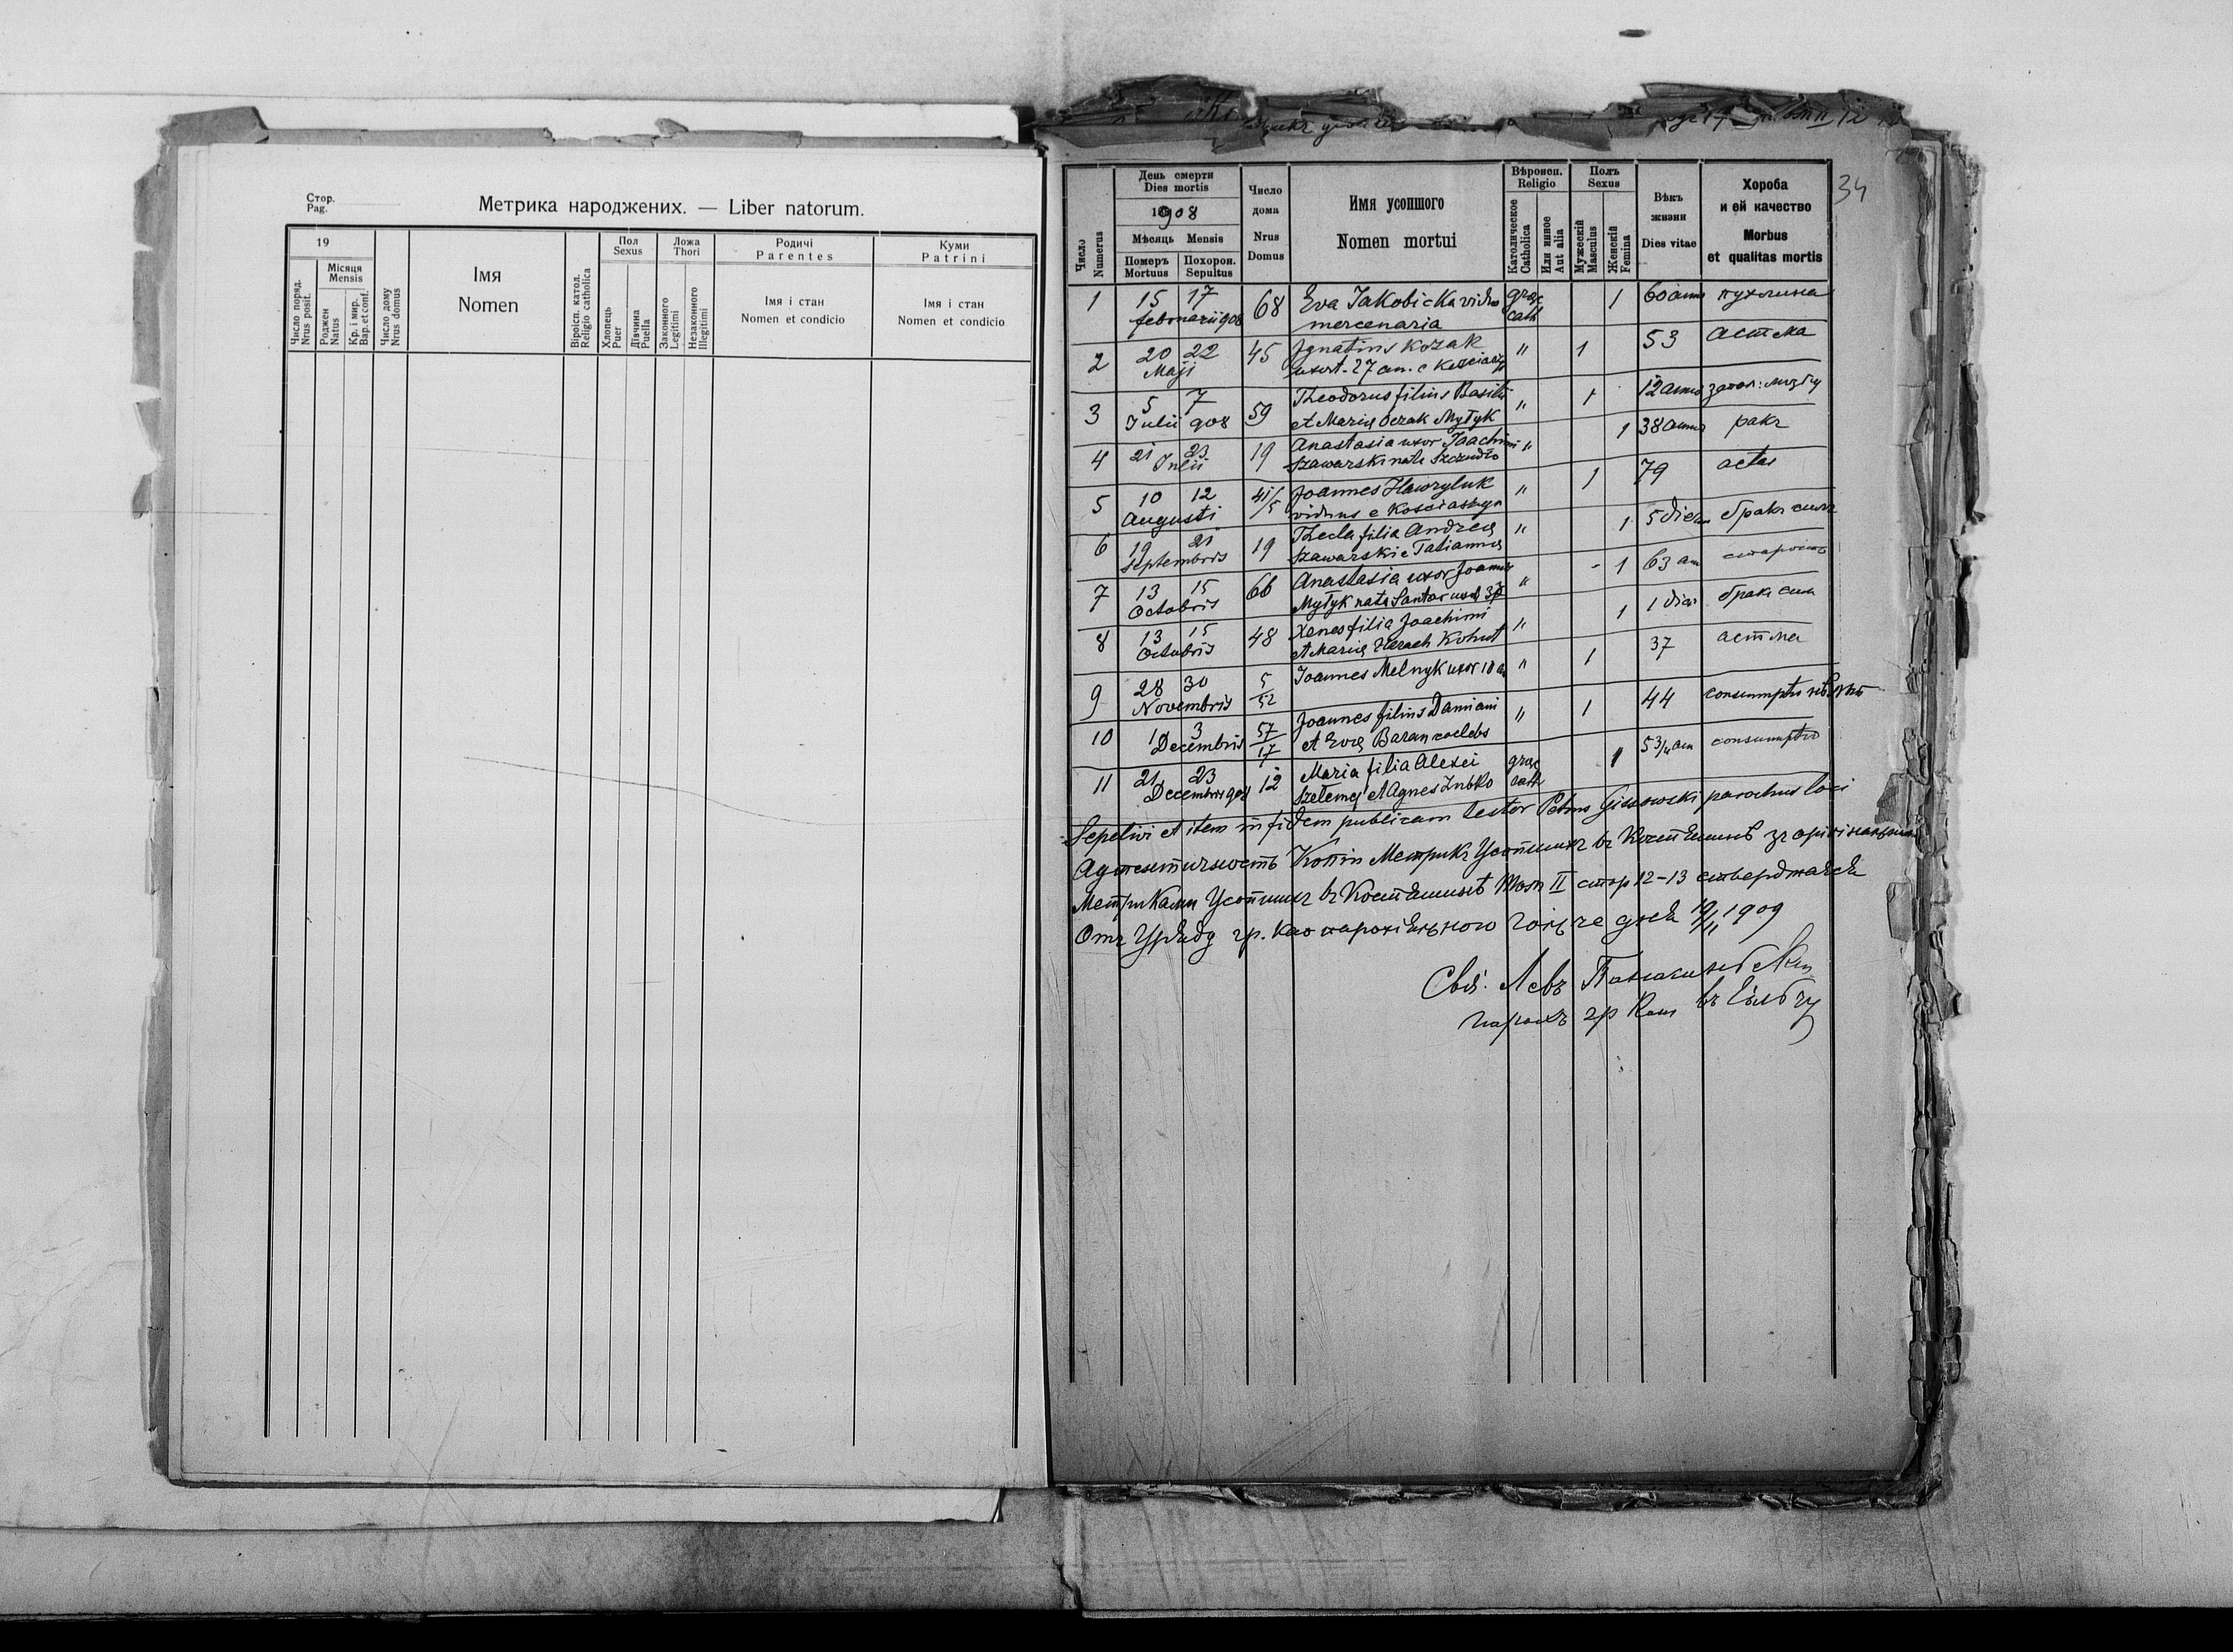 Стор.
Pag.
Метрика народжених. — Liber natorum.
19
Число поряд.
Nrus posit.
Місяця
Mensis
Роджен
Natus
Кр. і мир.
Bap. et conf.
Число дому
Nrus domus
Імя
Nomen
Віроісп. катол.
Religio catholica
Пол
Sexus
Хлопець
Puer
Дівчина
Puella
Ложа
Thori
Законного
Legitimi
Незаконного
Illegitimi
Родичі
Parentes
Імя і стан
Nomen et condicio
Куми
Patrini
Імя і стан
Nomen et condicio
34
Число
Numerus
День смерти
Dies mortis
1908
Мѣсяць Mensis
Померъ
Mortuus
Похорон.
Sepultus
Число
дома
Nrus
Domus
Имя усопшого
Nomen mortui
Вѣроисп.
Religio
Католическое
Catholica
Или инное
Aut alia
Полъ
Sexus
Мужескій
Masculus
Женскій
Femina
Вѣкъ
жизни
Dies vitae
Хороба
и ей качество
Morbus
et qualitas mortis
1 15 17 68 Eva Jakobicka vidua graec 1 60 anns пухлина
februarii 908 mercenaria cath
2 20 22 45 Ignatius Kozak " 1 53 астма
Maji uxort. 27 an. e
3 5 7 59 Theodorus filius Basilii " 1 12 annor
Julii 908 et Mariae Oczak Mytyk
4 21 23 19 Anastasia uxor Joachimi " 1 38 annor ракъ
Julii Szawarski nata
5 10 12 41/5 Joannes Hawryluk " 1 79 aetas
Augusti viduus e
6 19 21 19 Thecla filia Andreae " 1 5 dierum бракъ силъ
Septembris Szawarski e Tatianna
7 13 15 66 Anastasia uxor Joannis " 1 63 an старость
Octobris Mytyk nata
8 13 15 48 Xenes filia Joachimi " 1 1 diei бракъ сил
Octobris et Mariae Kohut
9 28 30 5/52 Joannes Melnyk uxor 18 an " 1 37 астма
Novembris
10 1 3 57/17 Joannes filius Damiani " 1 44 consumptio
Decembris et Evae Baran caelebs
11 21 23 12 Maria filia Alexei graec 1 5 3/4 an consumptio
Decembris 908 et Agnes Zubko cath
Sepelivi et item in fidem publicam testor Petrus parochus loci
Аутентичность Копіи Метрикъ Усопшихъ въ зъ
Метриками Усопшихъ въ Томъ II стор 12-13 стверджаєся
Отъ Уряду гр. Кат парохіяльного дня 19/II 1909
Свящ. Левъ
парохъ гр Кат въ